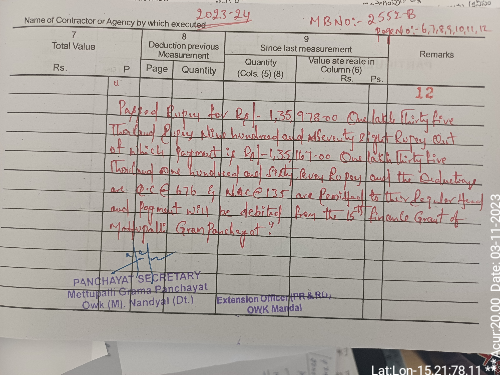 Name of Contractor or Agency by which executed 2023-24
MBNo:- 2552-B
PageNo:- 6,7,8,9,10,11,12
7 8 9
Total Value Deduction previous Measurement Since last measurement Remarks
Rs. P Page Quantity Quantity (Cols. (5) (8) Value ate reale in Column (6) Rs. Ps.
12
Passed Rupey for Rs/- 1,35,978.00 One lakh Thirty five
Thousand Rupey Nine hundred and Seventy Eight Rupey out
of which payment is Rs/- 1,35,167.00 One lakh Thirty five
Thousand one hundred and Sixty Seven Rupey and the Deductions
are Q.C @ 676 & NAC @ 135 are Remitted to their Regular Head
and Payment will be debited from the 15th finance Grant of
Mettupalli Gram Panchayat."
PANCHAYAT SECRETARY
Mettupalli Grama Panchayat
Owk (M). Nandyal (Dt.)
Extension Officer (PR & RD)
OWK Mandal
Lat:Lon-15.21:78.11
Acur:20.00 Date: 03-11-2023